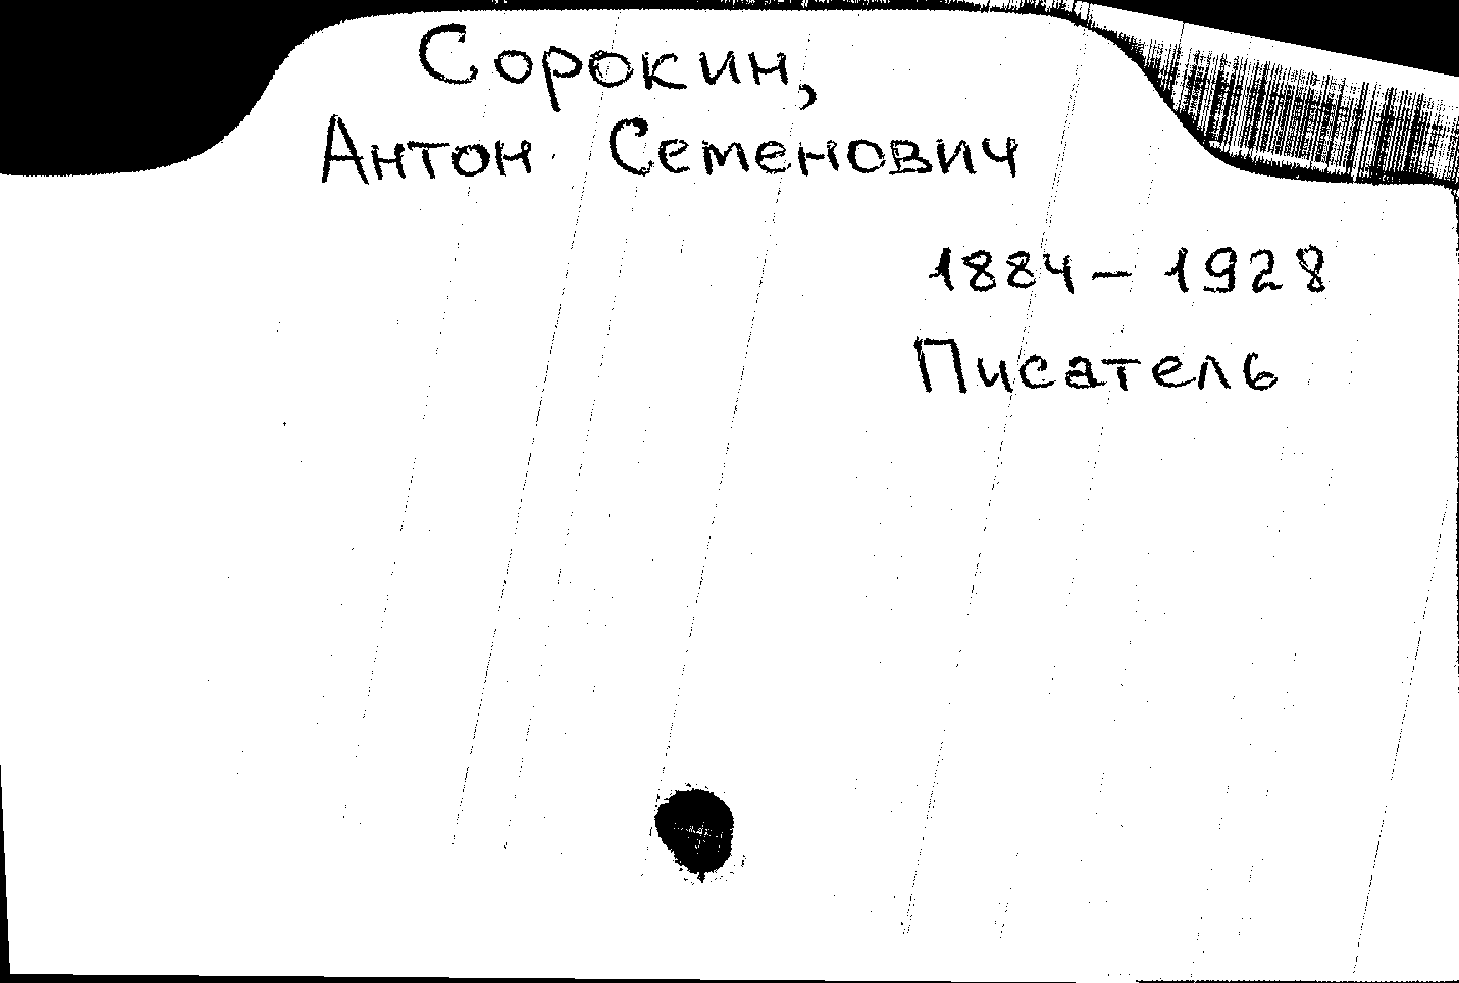 Сорокин,
Антон Семенович
1884 – 1928
Писатель